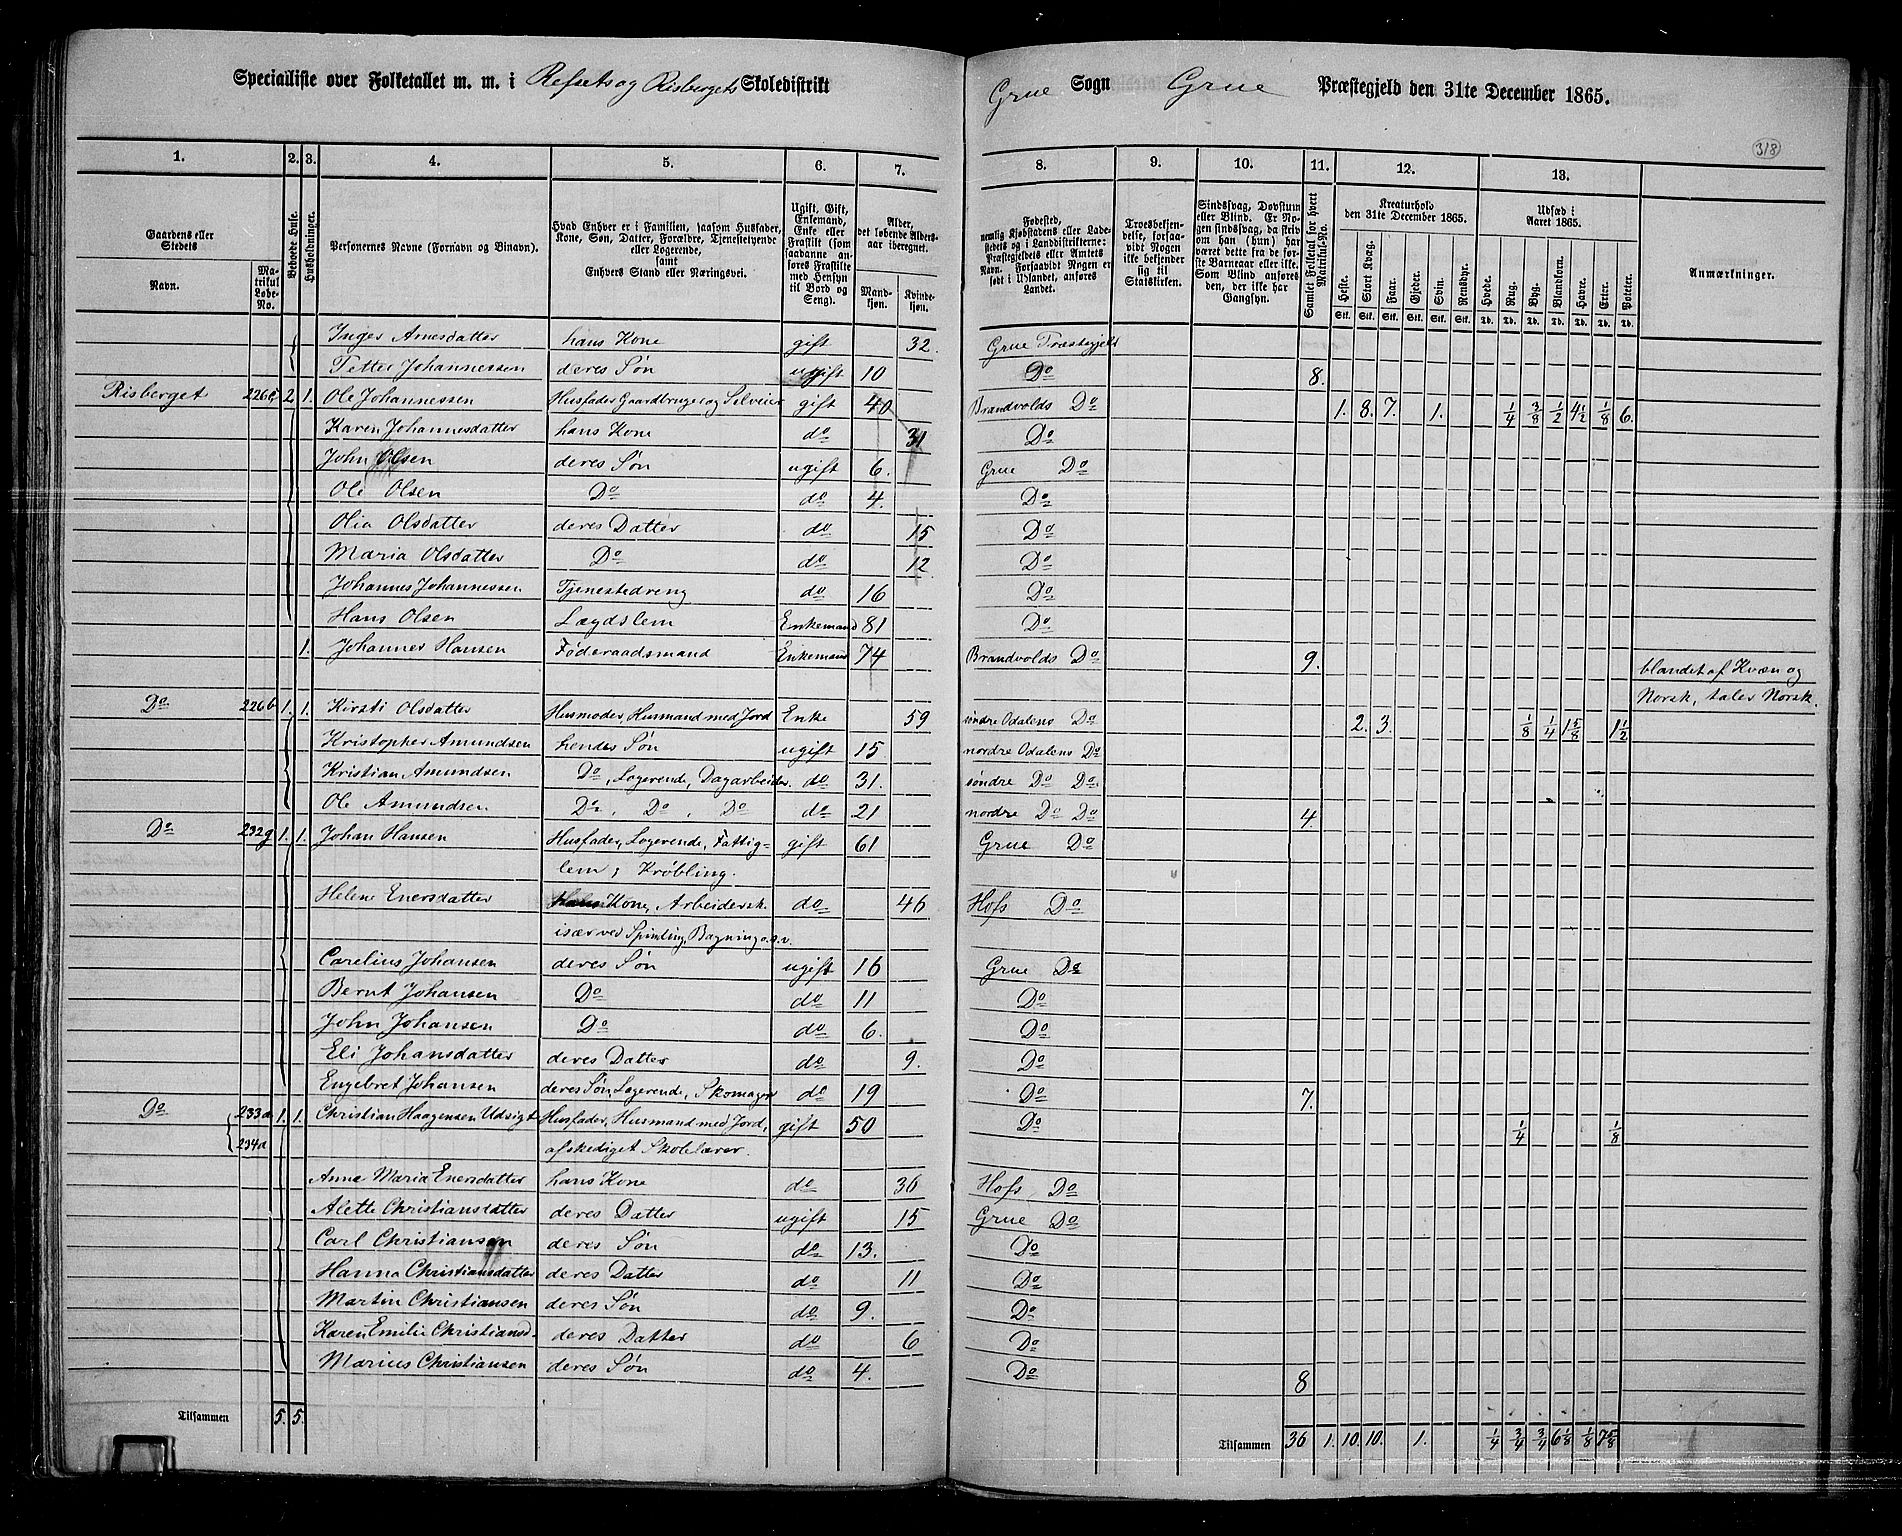 Specialliste over Folketallet m. m. i Refsets og Risbergets Skoledistrikt
Grue Sogn Grue Præstegjeld den 31te December 1865.
318
1. 2. 3. 4. 5. 6. 7. 8. 9. 10. 11. 12. 13.
Gaardens eller Stedets
Navn.
Matrikul Løbe-No.
Beboede Huse.
Husholdninger.
Personernes Navne (Fornavn og Binavn).
Hvad Enhver er i Familien, saasom Husfader, Kone, Søn, Datter, Forældre, Tjenestetyende eller Logerende, samt Enhvers Stand eller Næringsvei.
Ugift, Gift, Enkemand, Enke eller Fraskilt (som saadanne anføres Fraskilte med Hensyn til Bord og Seng).
Alder, det løbende Aldersaar iberegnet.
Mandkjøn. Kvindekjøn.
Fødested, nemlig Kjøbstadens eller Ladestedets og i Landdistrikterne: Præstegjeldets eller Amtets Navn. Forsaavidt Nogen er født i Udlandet, anføres Landet.
Troesbekjendelse, forsaavidt Nogen ikke bekjender sig til Statskirken.
Sindssvag, Døvstum eller Blind. Er Nogen sindssvag, da skriv om han (hun) har været dette fra de første Barneaar eller ikke. Som Blind anføres den, der ikke har Gangsyn.
Samlet Folketal for hvert Matrikuls-No.
Kreaturhold den 31te December 1865.
Heste. Stort Kvæg. Faar. Gjeder. Svin. Rensdyr.
Udsæd i Aaret 1865.
Hvede. Rug. Byg. Blandkorn. Havre. Erter. Poteter.
Anmærkninger.
Stk. Stk. Stk. Stk. Stk. Stk. Td. Td. Td. Td. Td. Td. Td.
Inger Arnesdatter hans Kone gift 32. Grue Præstegjeld
Petter Johannessen deres Søn ugift 10 Do 8.
Risberget 226a 2 1. Ole Johannessen Husfader Gaardbruger og Selveier gift 40 Brandvolds Do 1. 8. 7. 1. 1/4 3/8 1/2 4 1/2 1/8 6.
Karen Johannesdatter hans Kone do 31 Do
John Olsen deres Søn ugift 6. Grue Do
Ole Olsen Do do 4. Do
Olia Olsdatter deres Datter do 15 Do
Maria Olsdatter Do do 12 Do
Johannes Johannessen Tjenestedreng do 16 Do
Hans Olsen Lægdslem Enkemand 81 Do
1. Johannes Hansen Føderaadsmand Enkemand 74 Brandvolds Do 9. blandet af Kvæn og
Norsk, taler Norsk.
Do 226b 1. 1. Kirsti Olsdatter Husmoder, Husmand med Jord Enke 59 søndre Odalens Do 2. 3. 1/8 1/4 1 5/8 1 1/2
Kristopher Amundsen hendes Søn ugift 15. nordre Odalens Do
Kristian Amundsen Do, Logerende, Dagarbeider. do 31. søndre Do Do
Ole Amundsen Do, Do, Do do 21 nordre Do Do 4.
Do 232g 1. 1. Johan Hansen Husfader, Logerende, Fattig- gift 61 Grue Do
lem, Krøbling.
Helene Enersdatter hans Kone, Arbeidersk. do 46 Hofs Do
især ved Spinding, Bagning o.s.v.
Carelius Johansen deres Søn ugift 16 Grue Do
Bernt Johansen Do do 11 Do
John Johansen Do do 6. Do
Eli Johansdatter deres Datter do 9. Do
Engebret Johansen deres Søn, Logerende, Skomager do 19 Do 7.
Do 233a 1. 1. Christian Haagensen Udsigt Husfader, Husmand med Jord, gift 50 Do 1/4 1/8
234a afskediget Skolelærer.
Anne Maria Enersdatter hans Kone do 36 Hofs Do
Alette Christiansdatter deres Datter ugift 15 Grue Do
Carl Christiansen deres Søn do 13. Do
Hanna Christiansdatter deres Datter do 11 Do
Martin Christiansen deres Søn do 9. Do
Karen Emilie Christiansd. deres Datter do 6 Do
Marius Christiansen deres Søn do 4. Do 8
Tilsammen 5. 5. Tilsammen 36 1. 10. 10. 1. 1/4 3/4 3/4 6 1/8 1/8 7 5/8